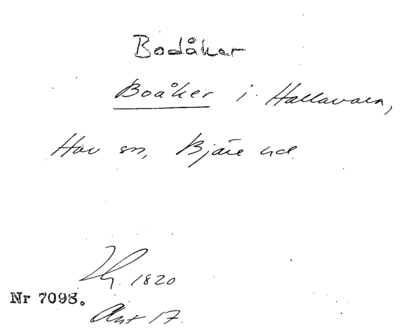 Bodåkar
Boåker i Hallavara,
Hov sn, Bjäre hd.
1820
Nr 7098.
Akt 17.